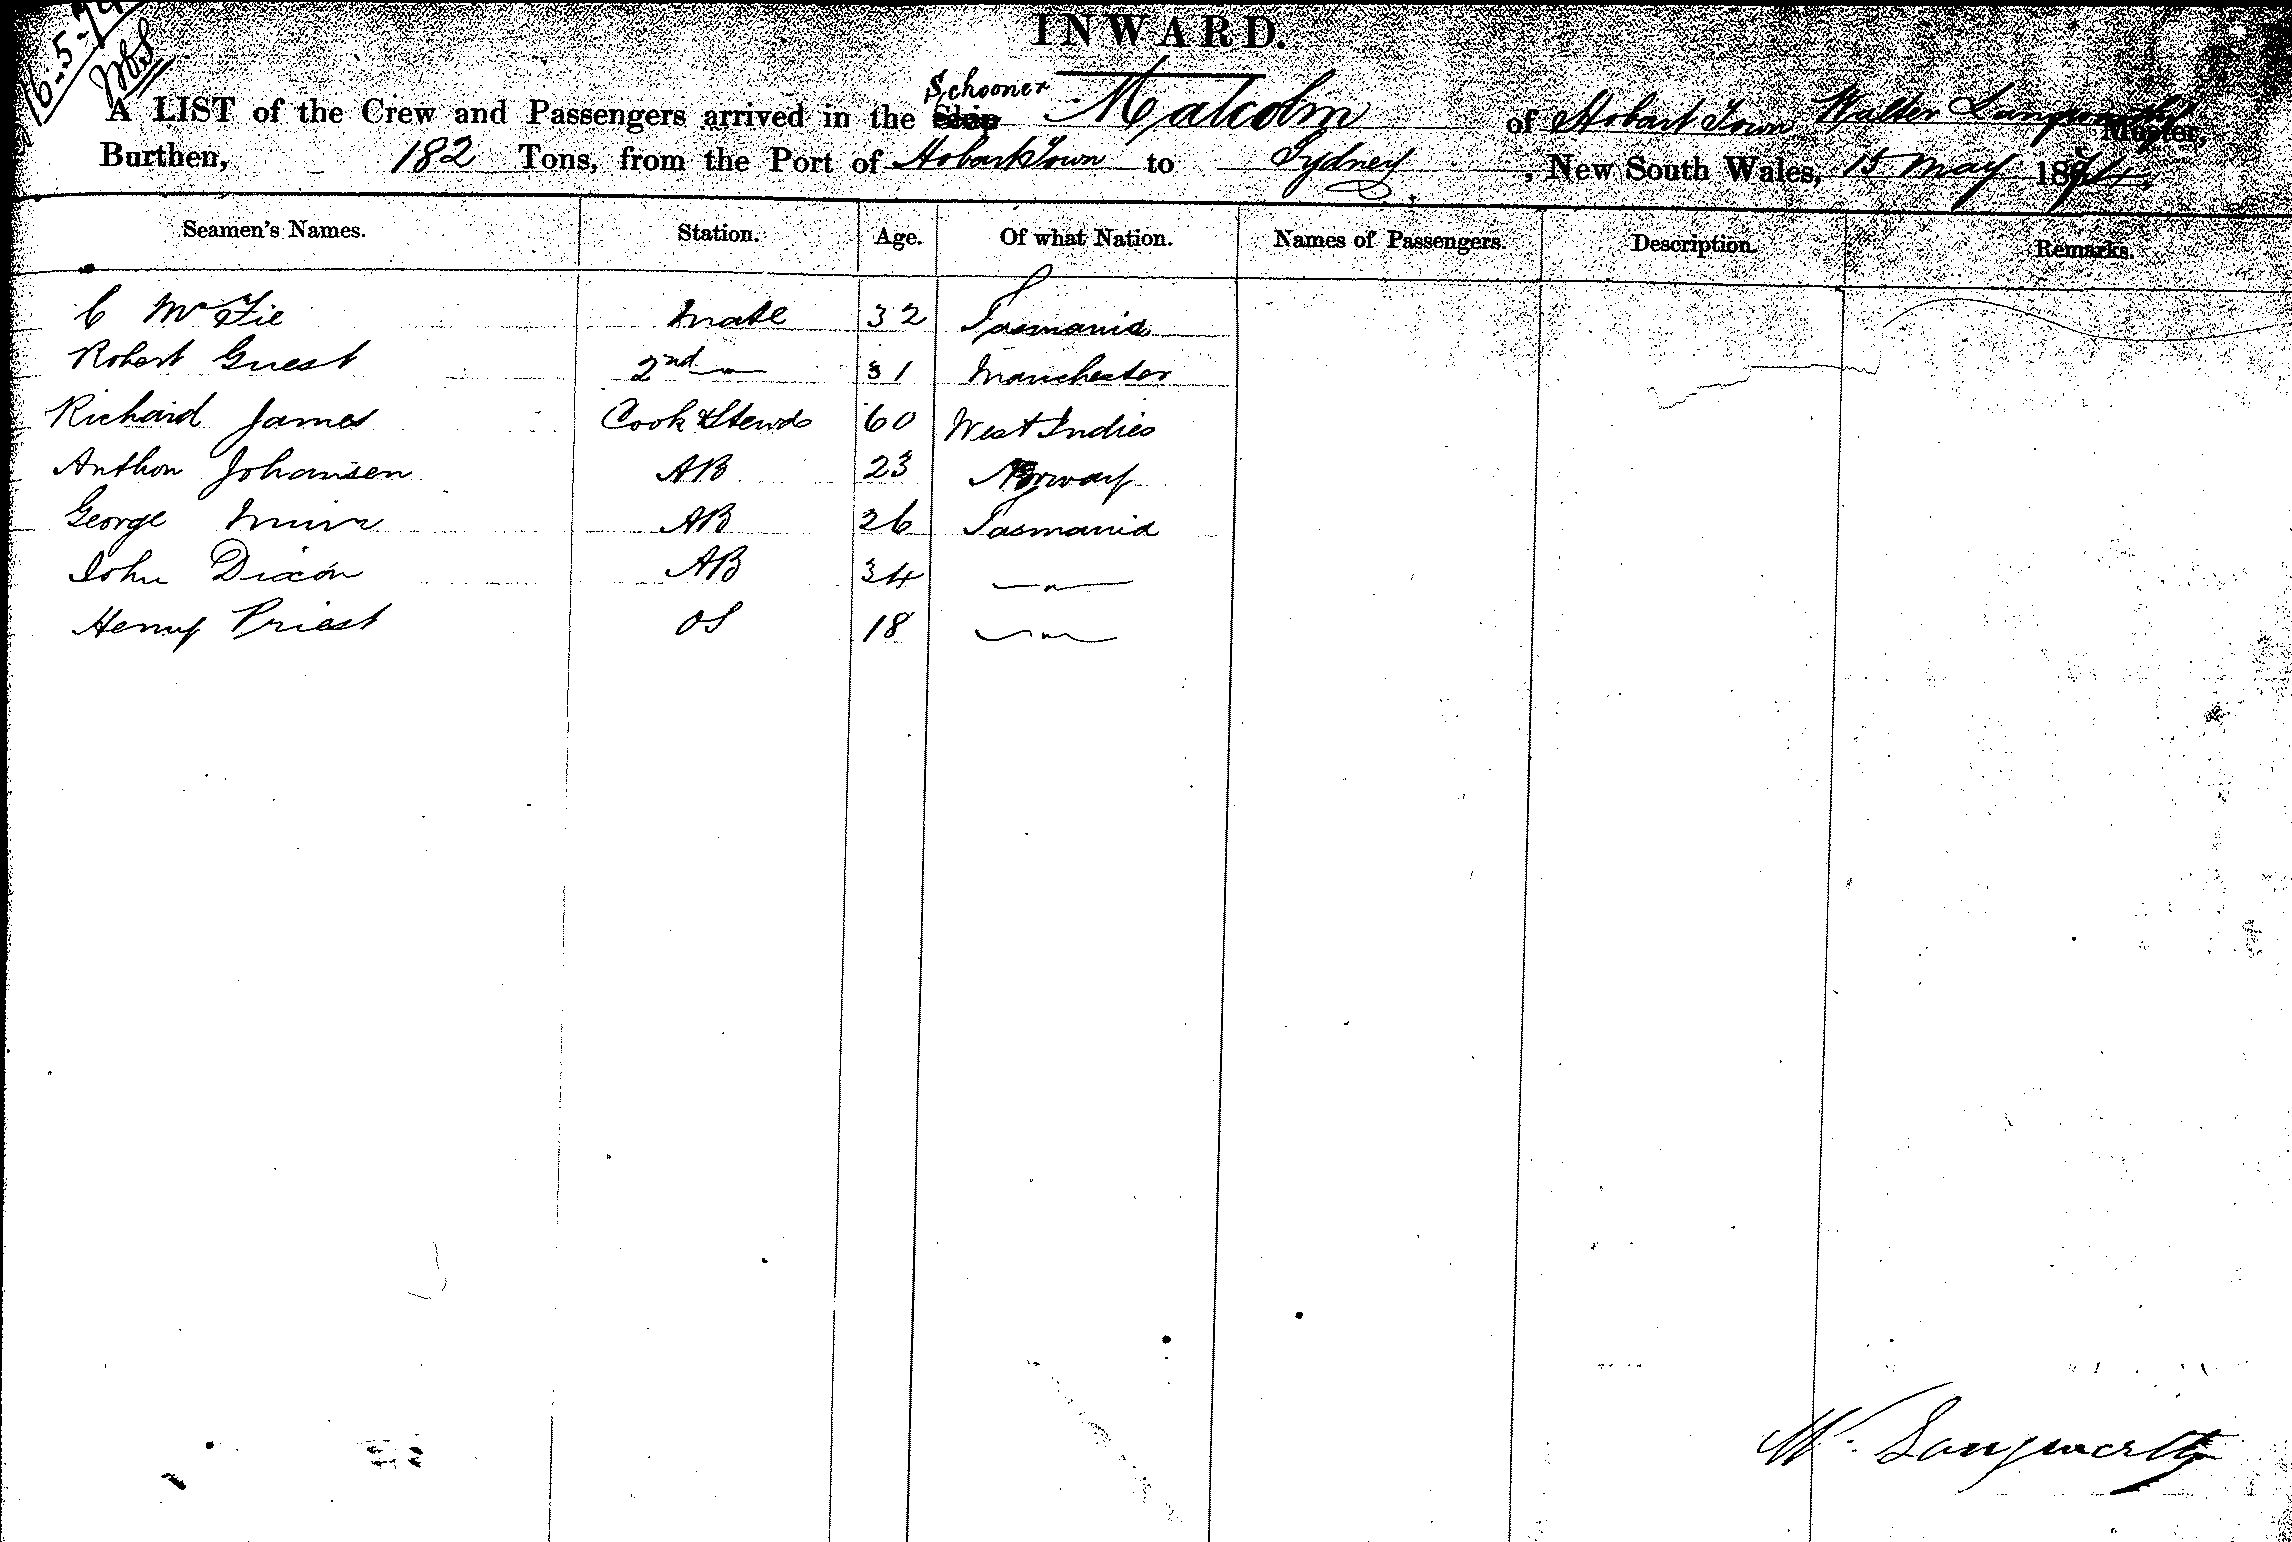 16-5-74
INWARD.
Schooner
A LIST of the Crew and Passengers arrived in the Ship Malcolm of Hobart Town Walter Langworthy Master,
Burthen, 182 Tons, from the Port of Hobart Town to Sydney, New South Wales, 15 May 1874.
Seamen's Names. Station. Age. Of what Nation. Names of Passengers. Description. Remarks.
C McFie Mate 32 Tasmania
Robert Guest 2nd —"— 31 Manchester
Richard James Cook & Stewd 60 West Indies
Anthon Johansen AB 23 Norway
George Muir AB 26 Tasmania
John Dixon AB 34 —"—
Henry Priest OS 18 —"—
W. Langworthy